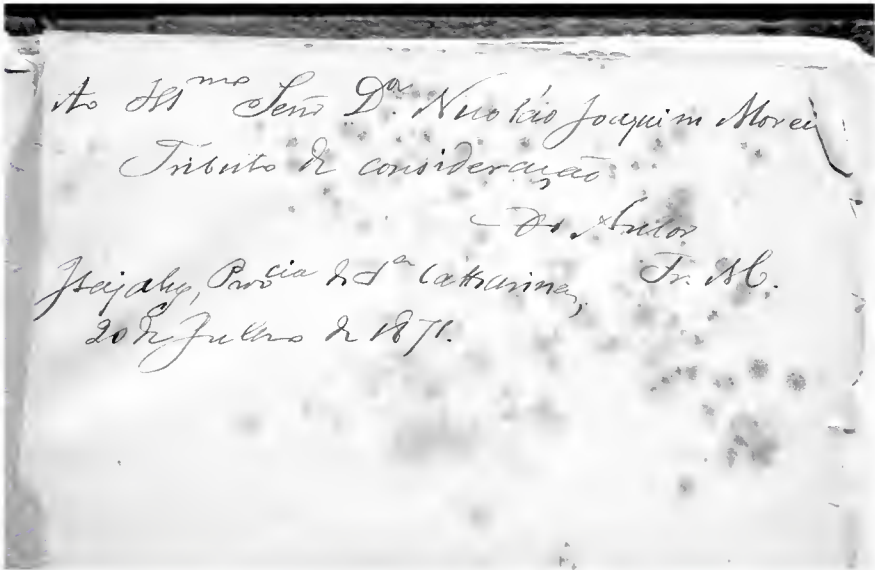 Ao Illmo Senr Dor. Nicoláo Joaquim Morei
Tributo de consideração
Do Autor
Itajahy, Provcia de Sta Catharina, Fr. M.
20 de Julho de 1871.